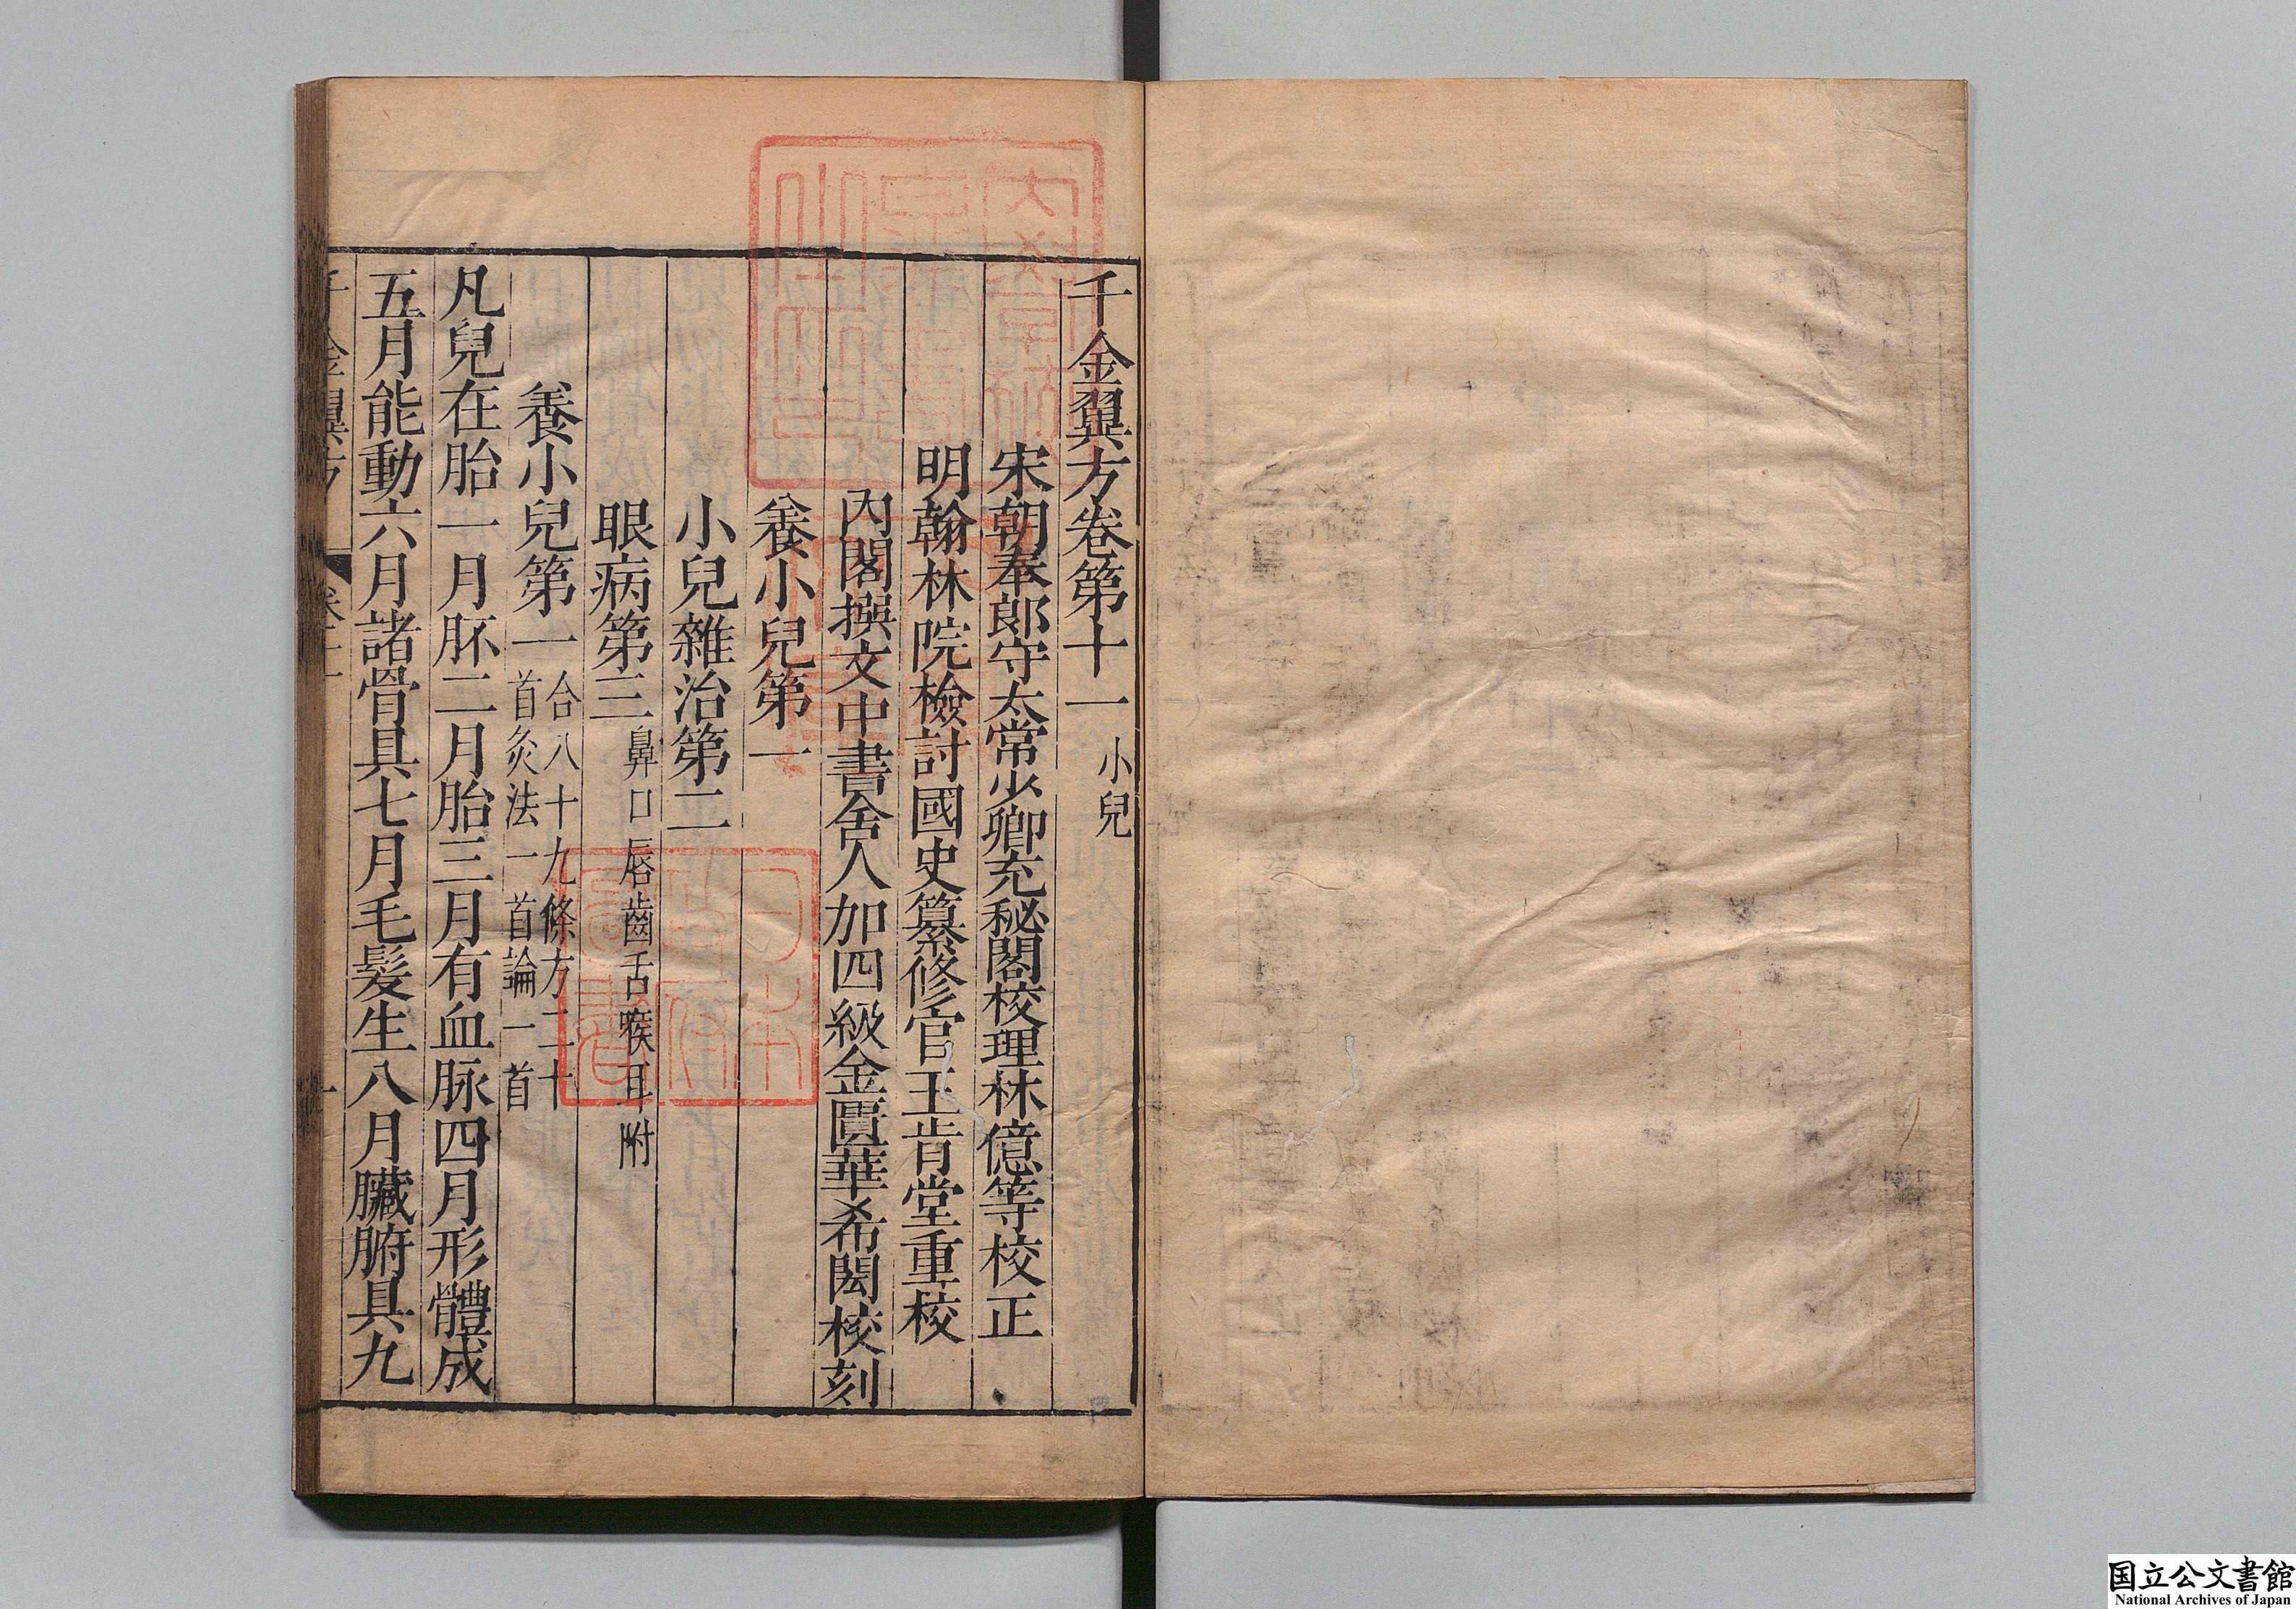 千金翼方卷第十一 小兒
宋朝奉郎守太常少卿充秘閣校理林億等校正
明翰林院檢討國史纂修官王肯堂重校
內閣撰文中書舍人加四級金匱華希閎校刻
養小兒第一
小兒雜治第二
眼病第三 鼻口唇齒舌喉耳附
養小兒第一 合八十九條方二十
首灸法一首論一首
凡兒在胎一月胚二月胎三月有血脉四月形體成
五月能動六月諸骨具七月毛髮生八月臟腑具九
千金翼方 卷十一 一
日本
政府
圖書
国立公文書館
National Archives of Japan